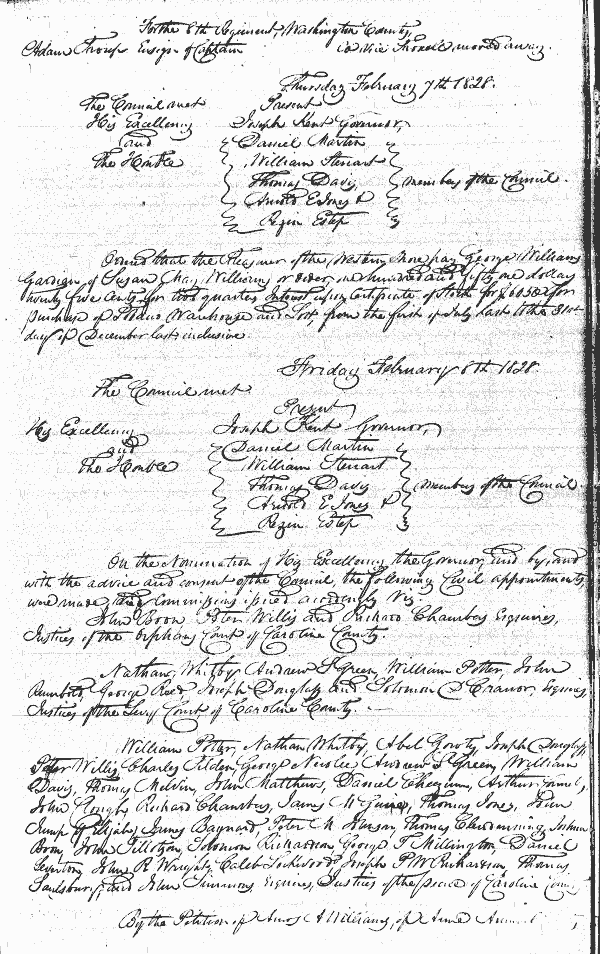 For the 8th Regiment, Washington County,
Adam Troup Ensign of Captain vice moved away.
Thursday February 7th 1828.
The Council met Present
His Excellency Joseph Kent Governor,
and Daniel Martin
the Honble William Steuart
Thomas Davis members of the Council.
Arnold E Jones &
Rezin Estep
Ordered that the Treasurer of the Western Shore pay George Williams
Gardian of Susan May Williams or order, one hundred and fifty one dollars
twenty five Cents, for two quarters Interest upon Certificate of Stock for for
purchase of Tobacco Warehouse and Lot, from the first of July last to the 31st
day of December last inclusive.
Friday February 8th 1828.
The Council met
Present
His Excellency Joseph Kent Governor,
and Daniel Martin
the Honble William Steuart
Thomas Davis members of the Council.
Arnold E Jones &
Rezin Estep
On the Nomination of His Excellency the Governor, and by, and
with the advice and consent of the Council, the following Civil appointments
were made, and Commissions issued accordingly Viz.
John Boon Peter Willis and Richard Chambers Esquires,
Justices of the Orphans Court of Caroline County.
Nathan Whitby Andrew S Green, William Potter, John
George Reed Joseph Douglass and Solomon D Cranor, Esquires,
Justices of the Levy Court of Caroline County.
William Potter, Nathan Whitby, Abel Gooty Joseph Douglass
Peter Willis Charles Tilden, George Andrew S Green, William
Davis, Thomas Melvin, John Matthews, Daniel Cheezum, Arthur
John Richard Chambers, James McGuire, Thomas Jones, John
Jump of Elijah, James Baynard, Peter M Thomas Clendenning, Joshua
Boon, John Tillotson, Solomon Richardson, George T Millington Daniel
Leverton, John R Wright, Caleb Lockwood Joseph P W Richardson, Thomas
Saulsbury, and John Simmons Esquires, Justices of the peace of Caroline County
By the Petition of Amos A Williams, of Anne Arundel